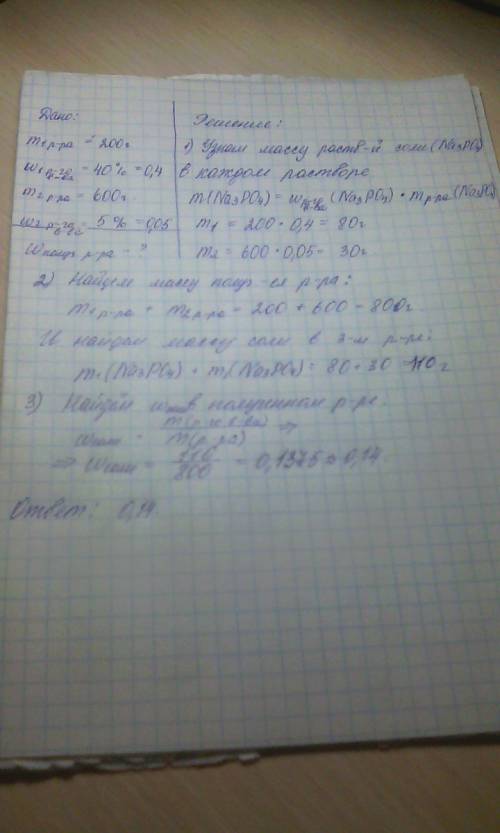 Дано:
m₁р-ра = 200г
w₁р-го в-ва = 40% = 0,4
m₂р-ра = 600г
w₂р-го в-ва = 5% = 0,05
wполуч р-ра - ?
Решение:
1) Узнаем массу раств-й соли (Na₃PO₄)
в каждом растворе
m(Na₃PO₄) = wр-го в-ва (Na₃PO₄) · mр-ра (Na₃PO₄)
m₁ = 200 · 0,4 = 80г
m₂ = 600 · 0,05 = 30г
2) Найдем массу получ-ся р-ра:
m₁р-ра + m₂р-ра = 200 + 600 = 800г.
И найдем массу соли в 3-м р-ре:
m₁(Na₃PO₄) + m(Na₃PO₄) = 80 + 30 = 110г
3) Найдём w в полученном р-ре.
wсоли = m(р-го в-ва) / m(р-ра) =>
=> wсоли = 110 / 800 = 0,1375 ≈ 0,14.
Ответ: 0,14.